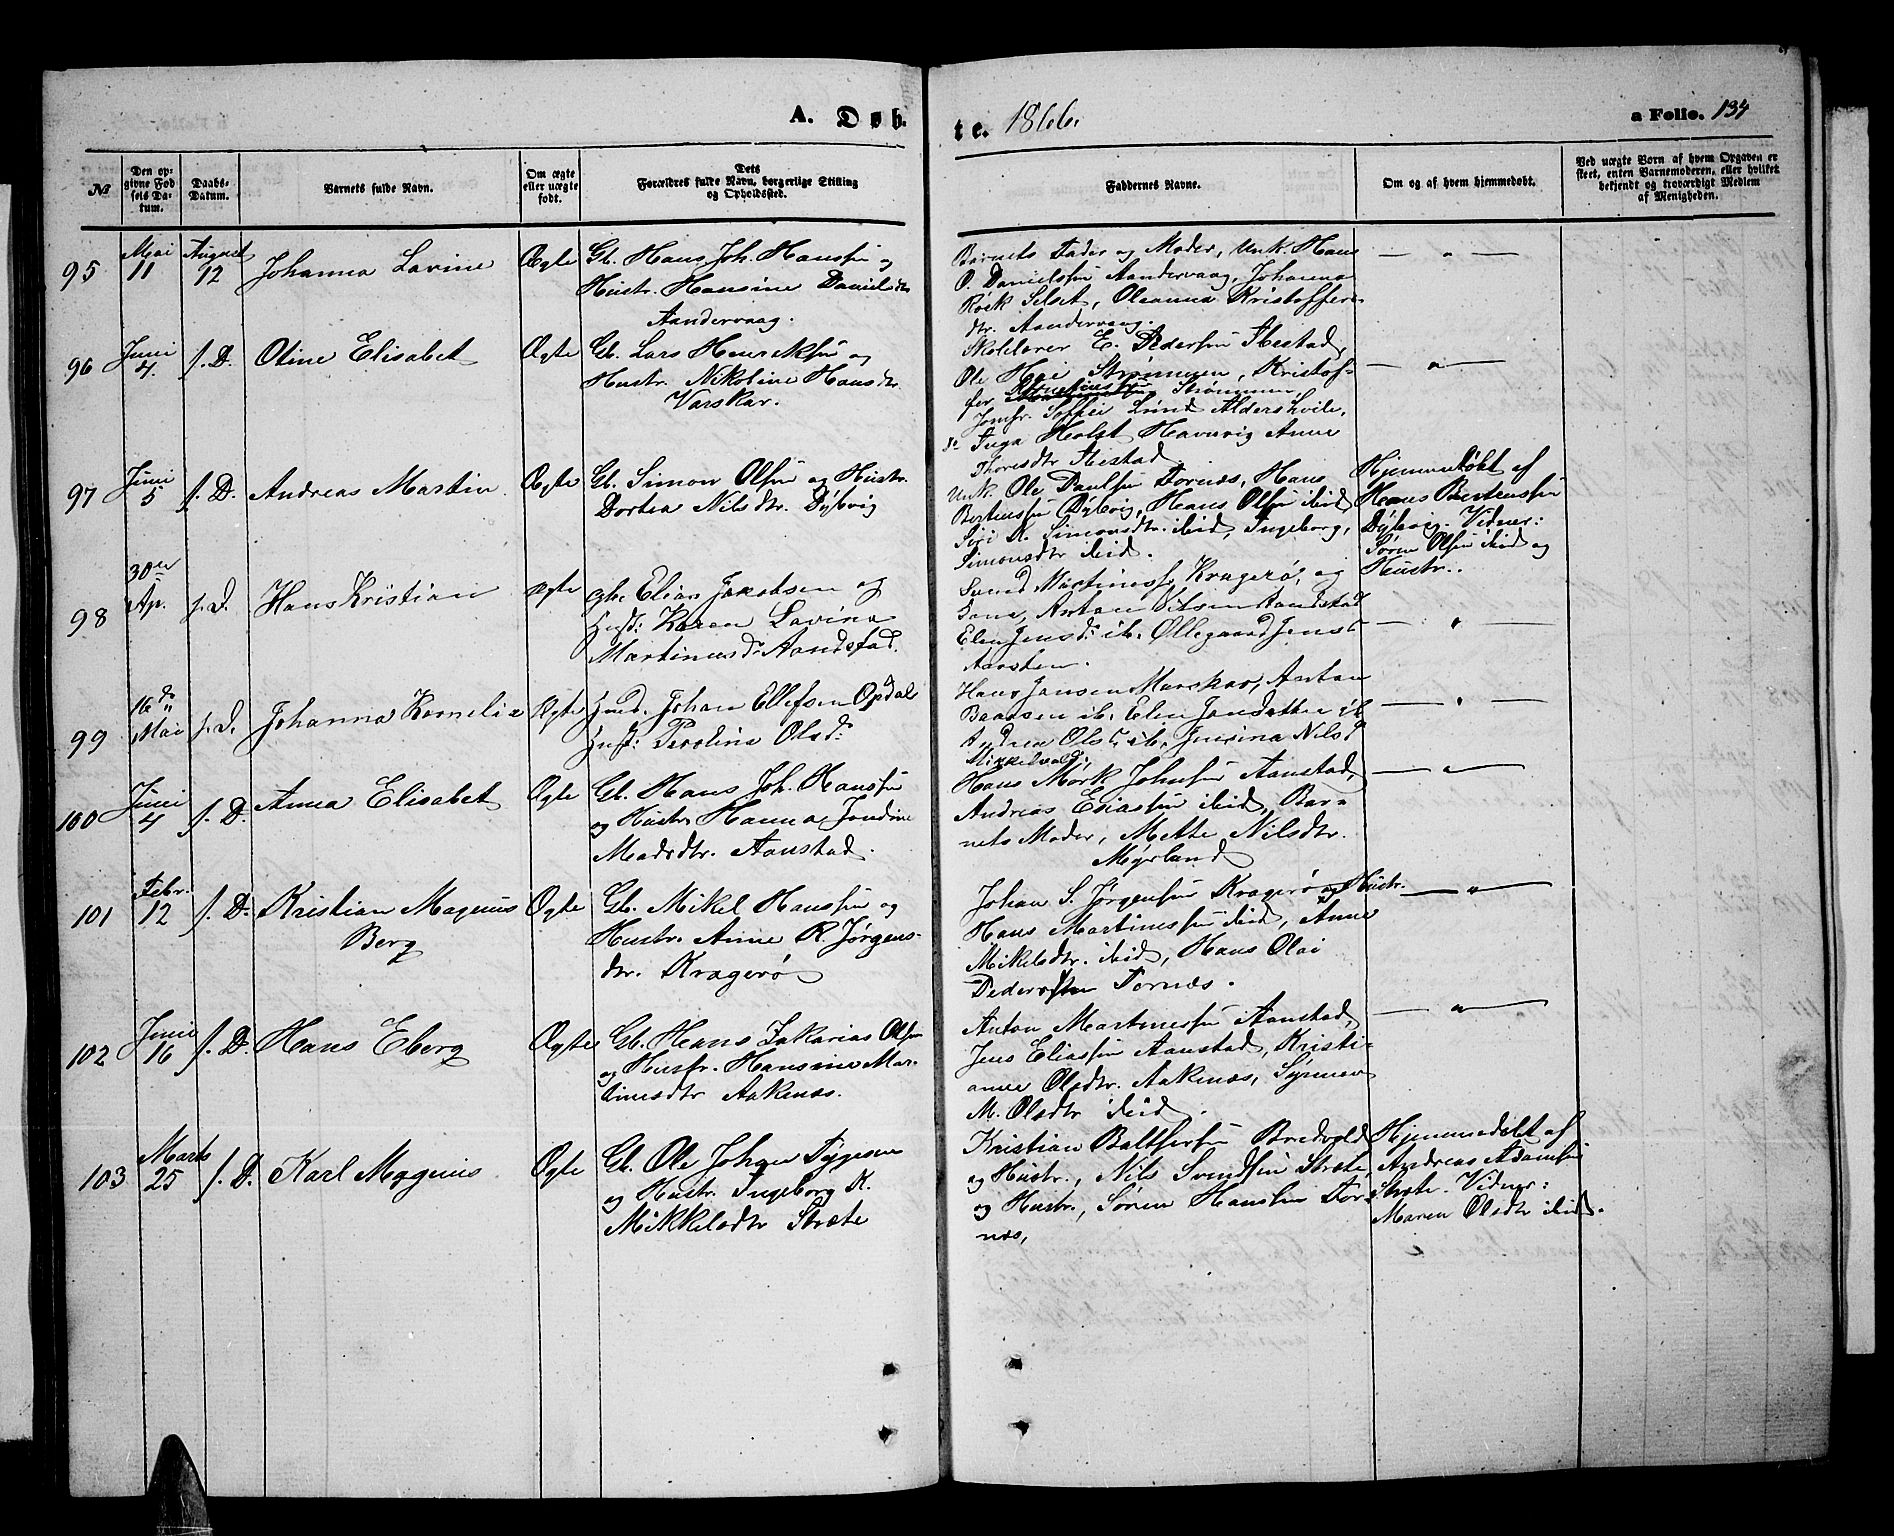 A. Døb-
te. 1866.
a Folio. 134
№
Den op-
givne Fød-
sels Da-
tum.
Daabs-
Datum.
Varnets fulde Navn.
Om ægte
eller uægte
født.
Dets
Forældres fulde Navn, borgerlige Stilling
og Opholdssted.
Faddernes Navne.
Om og af hvem hjemmedøbt.
Ved uægte Børn af hvem Opgaven er
skeet, enten Barnemoderen, eller hvilket
bekjendt og troværdigt Medlem
af Menigheden.
95
Mai
11
August
12
Johanna Lavine
Ægte
Gb. Hans Joh. Hanssen og
Hustr. Hansine Danielsdtr
Aandervaag.
Barnets Fader og Moder, Unk. Hans
O. Danielsen Aandervaag, Johanna
Røek Selset, Oleanna Kristoffers-
dtr. Aandervaag.
— " —
96
Juni
4.
s. D.
Oline Elisabet
Ægte
Gb. Lars Henriksen og
Hustr. Nikoline Hansdtr.
Varskar.
Skolelærer E. Pedersen Ibestad,
Ole Hei Strømmen, Kristof-
fer Strømmen,
Jomfr. Soffei Lund Aldershvile,
do Inga Holst Havnvig Anne
Thoresdtr Ibestad.
— " —
97
Juni
5
s. D.
Andreas Martin
Ægte
Gb. Simon Olsen og Hustr.
Dortea Nilsdtr. Dybvig
Unk. Ole Paulsen Tornæs, Hans
Bertenssen Dybvig, Hans Olsen ibid
Siri K. Simonsdtr. ibid, Ingeborg,
Simonsdtr ibid.
Hjemmedøbt af
Hans Bertenssen
Dybvig. Vidner:
Søren Olsen ibid og
Hustr..
98
30te
Ap.
s. D.
Hans Kristian
ægte
gb. Elias Jakobsen og
Hust: Karen Lavina
Martinusd. Aandstad.
Svend Martinuss. Kragerø, og
Kona, Anton Nilsen Aandstad
Elen Jensd. ib. Ollegaard Jensd
Aarsten.
— " —
99
16de
Mai
s. D.
Johanna Kornelia
Ægte
Husd. Johan Ellefsen Opdal
Hust: Peroline Olsd.
Hans Jansen Marskar, Anton
Baarsen ib. Elen Jonsdatter ib
Andrea Olsd. ib. Jensina Nilsd
Mikkelvold,
— " —
100
Juni
4
s. D.
Anna Elisabet
Ægte
Gb. Hans Joh. Hanssen
og Hustr. Hanna Jondine
Madsdtr. Aanstad.
Hans Mørk Johnsen Aanstad,
Andreas Eliassen ibid, Bar-
nets Moder, Mette Nilsdtr.
Myrland
— " —
101
Febr.
12
s. D.
Kristian Magnus
Berg
Ægte
Gb. Mikel Hanssen og
Hustr. Anne R. Jørgens-
dtr. Kragerø
Johan S. Jørgensen Kragerø og Hustr.
Hans Martinussen ibid, Anne
Mikelsdtr. ibid, Hans Olai
Pedersen Tornæs.
— " —
102
Juni
16
s. D.
Hans Eberg
Ægte
Gb. Hans Zakarias Olsen
og Hustr. Hansine Mar-
tinusdtr Aakenæs.
Anton Martinussen Aanstad,
Jens Eliassen Aanstad, Kristi-
anne Olsdtr. Aakenæs, Synnev
M. Olsdtr ibid.
— " —
103
Marts
25
s. D.
Karl Magnus
Ægte
Gb. Ole Johan Tygesen
og Hustr. Ingeborg K.
Mikkelsdtr Stræte
Kristian Baltsersen Bredvold
og Hustr., Nils Svendsen Stræte
og Hustr., Søren Hanssen Tor-
næs,
Hjemmedøbt af
Andreas Adamsen
Stræte. Vidner:
Maren Olsdtr ibid.